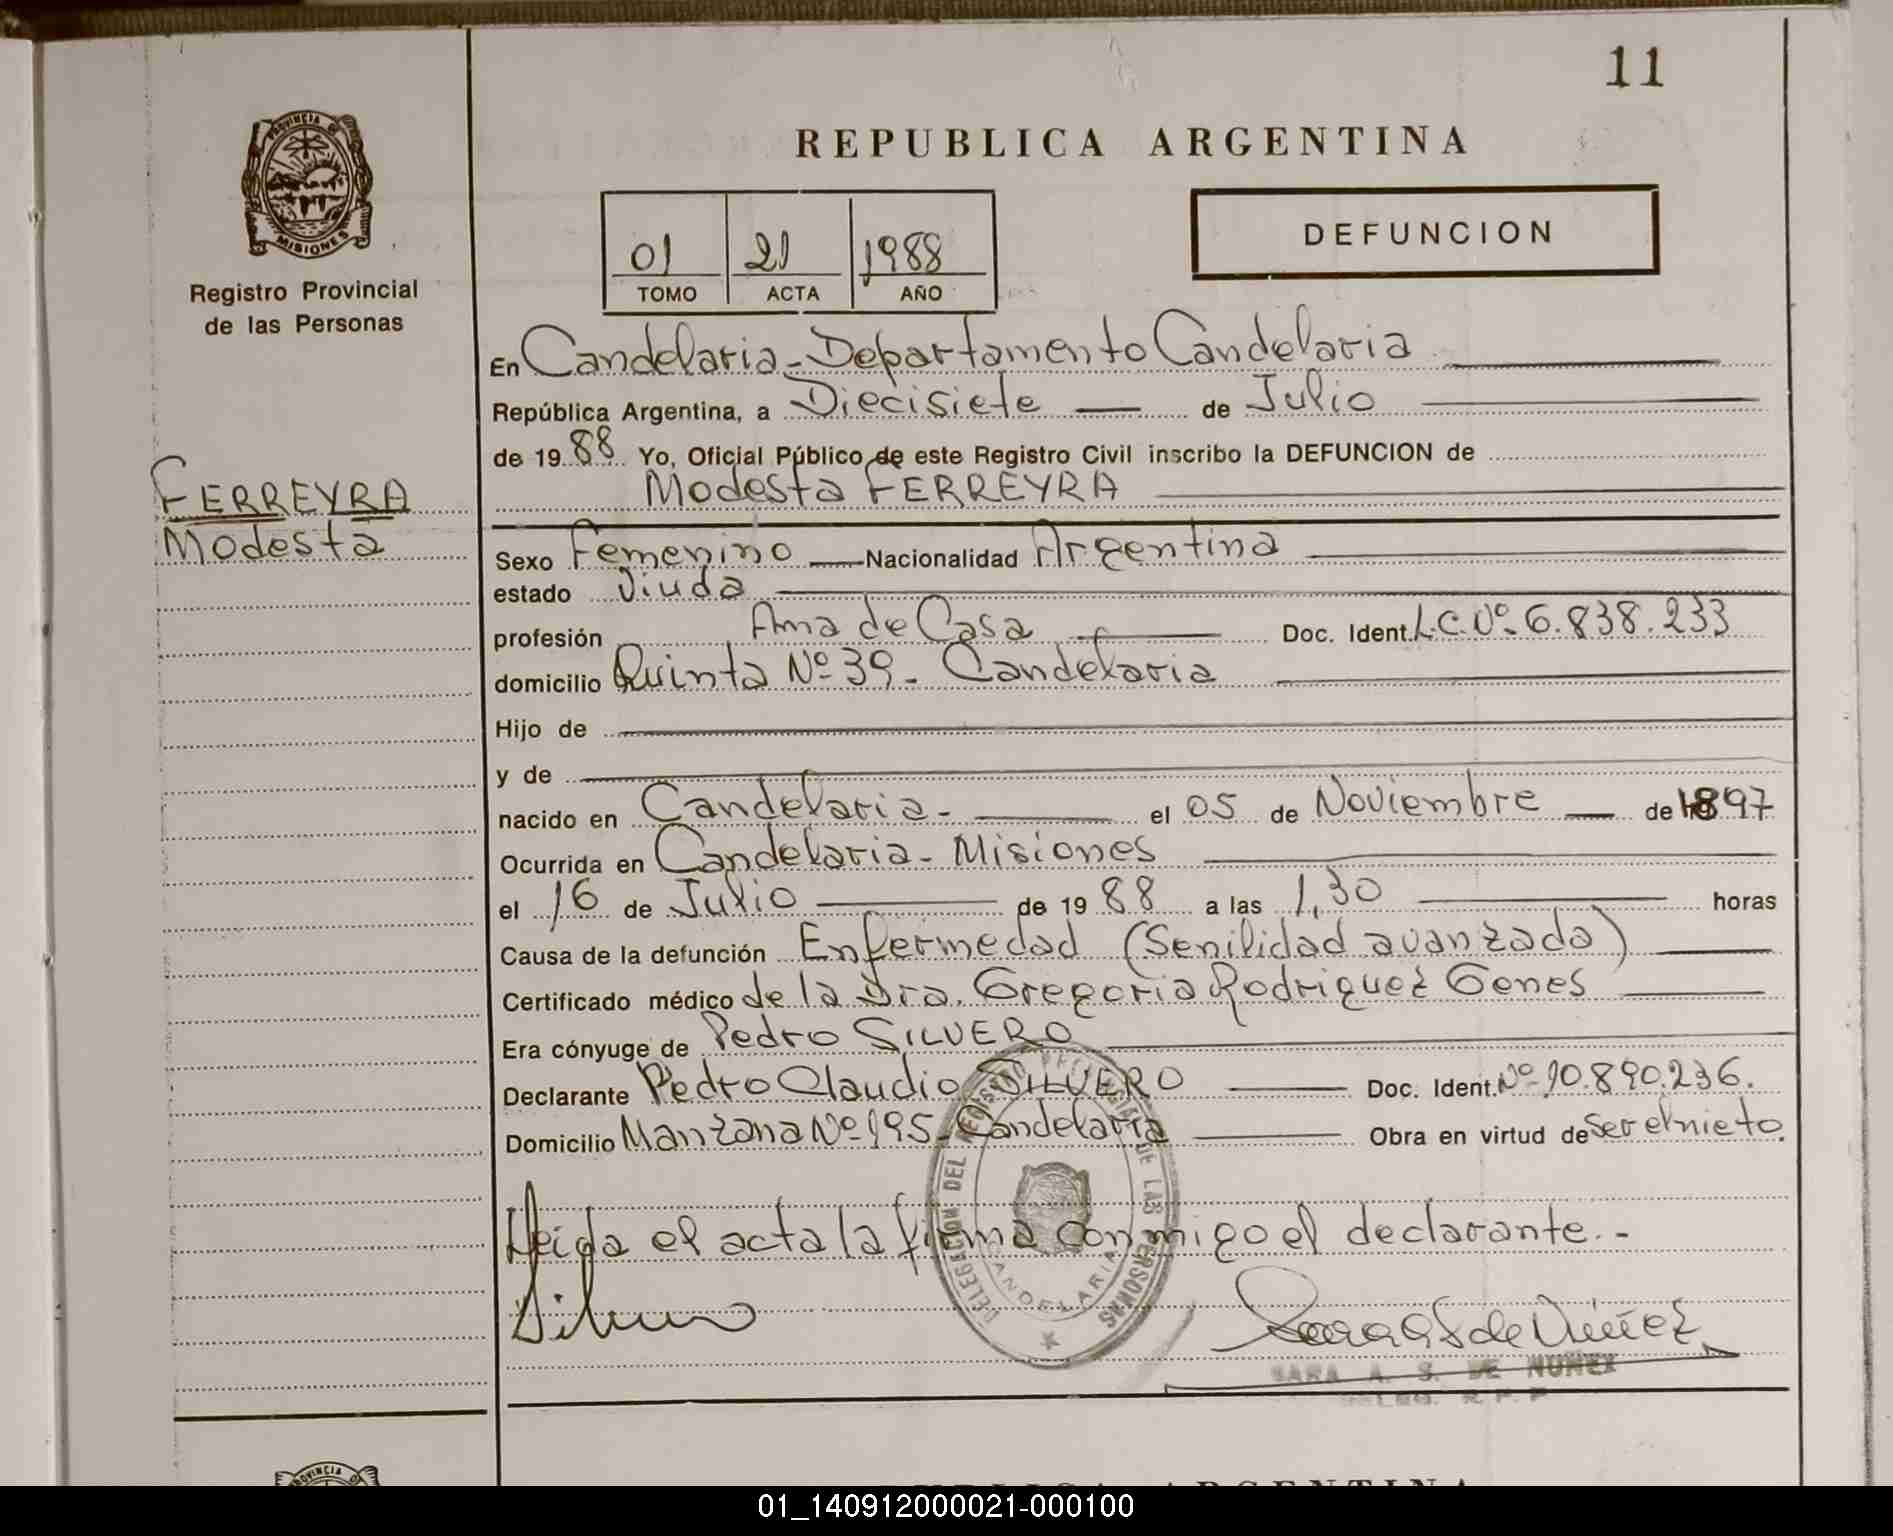 11
PROVINCIA DE
MISIONES
Registro Provincial
de las Personas
REPUBLICA ARGENTINA
01 21 1988
TOMO ACTA AÑO
DEFUNCION
En Candelaria - Departamento Candelaria
República Argentina, a Diecisiete de Julio
de 1988 Yo, Oficial Público de este Registro Civil inscribo la DEFUNCION de
Modesta FERREYRA
FERREYRA
Modesta
Sexo Femenino Nacionalidad Argentina
estado Viuda
profesión Ama de Casa Doc. Ident. L.C. Nº 6.838.233
domicilio Quinta Nº 39 - Candelaria
Hijo de
y de
nacido en Candelaria - el 05 de Noviembre de 1897
Ocurrida en Candelaria - Misiones
el 16 de Julio de 1988 a las 1,30 horas
Causa de la defunción Enfermedad (Senilidad avanzada)
Certificado médico de la Dra. Gregoria Rodriguez Genes
Era cónyuge de Pedro SILVERO
Declarante Pedro Claudio SILVERO Doc. Ident. Nº 10.890.236.
Domicilio Manzana Nº 195 - Candelaria Obra en virtud de Ser el nieto.
Leida el acta la firma conmigo el declarante.-
DELEGACION DEL REGISTRO PROVINCIAL DE LAS PERSONAS
CANDELARIA
Silvero
Sara A S de Núñez
SARA A. S. DE NUÑEZ
R. P. P.
PROVINCIA D
01_140912000021-000100